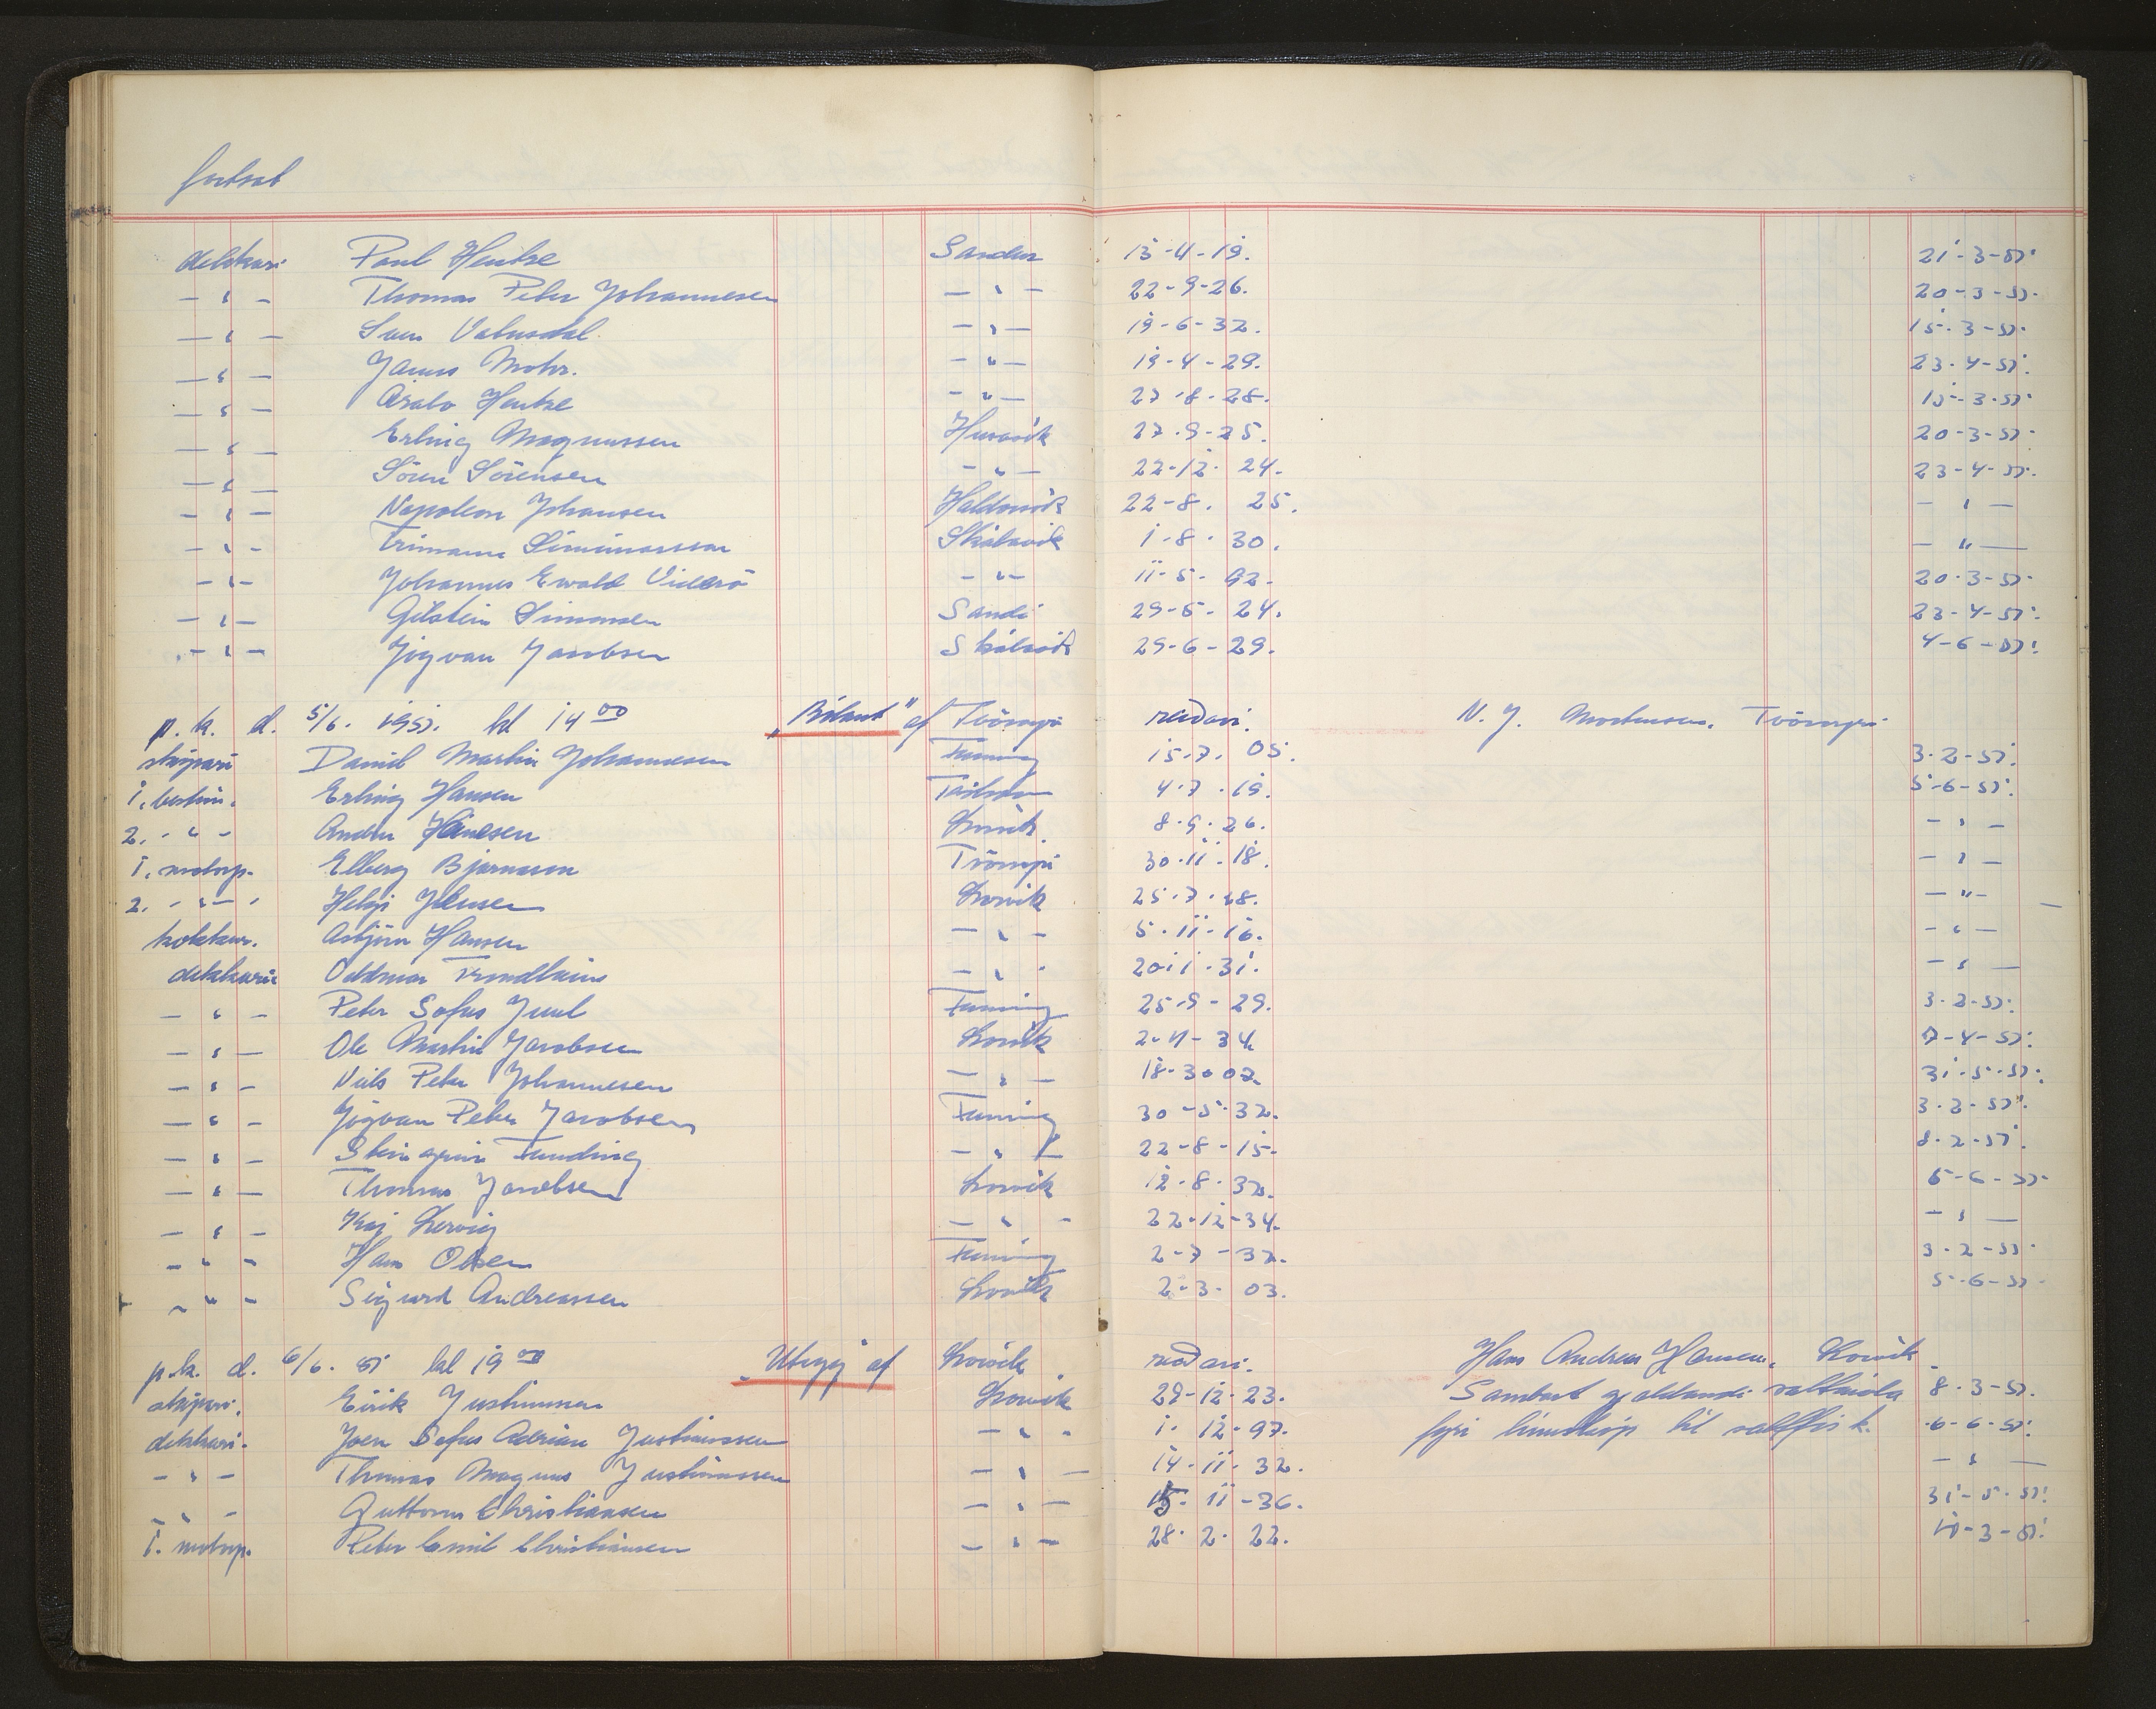 fortsat
dekkari Poul Hentze Sandur 13-4-19. 21-3-51.
- " - Thomas Peter Johannesen - " - 22-9-26. 20-3-51.
- " - Sven Vatnsdal. - " - 19-6-32. 15-3-51.
- " - Janus Mohr. - " - 19-4-29. 23-4-51.
- " - Hentze - " - 27-8-28. 3-51.
- " - Erling Magnussen Husavik 27-9-25. 20-3-51.
- " - Sören Sörensen - " - 22-12-24. 23-4-51.
- " - Napoleon Johansen Haldsvik 22-8. 25. - " -
- " - Trimann Skálavík 1-8-30. - " -
- " - Johannes Ewald Viderö - " - 11-5-92. 20-3-51.
- " - Gilstein Simonsen Sandi 29-5-24. 23-4-51.
- " - Jógvan Jacobsen Skálavík 29-6-29. 4-6-51.
p.k. d. 5/6. 1951. kl 14 00 af Tvöroyri reiðari. N. J. Mortensen. Tvöroyri
skipari Daniel Martin Johannesen Funning 15.7. 05. 3-2-51.
1. bestim. Erling Hansen 4.7.19. 5-6-51.
2. - " - Hansen Lorvik. 8.9.26. - " -
1. motorp. Elberg Bjarnason Tvöroyri 30.11.18. - " -
2. - " - Helgi Jensen Lorvik 25.7. - " -
kokkur. Asbjörn Hansen - " - 5.11.16. - " -
dekkari Trondheim - " - 20.1.31. - " -
- " - Peter Sofus Juul Funning 25.9-29. 3-2-51.
- " - Ole Martin Jacobsen Lorvik 34. 4-51.
- " - Niels Peter Johannesen - " - 18-3-02. 31-5-51.
- " - Jógvan Peter Jacobsen Funning 30-5-32. 3-2-51.
- " - Steingrim Funding - " - 22-8-15. 8-2-51.
- " - Thomas Jacobsen Lorvik 12-8-32. 5-6-51.
- " - Kaj Lervig - " - 22-12-34. - " -
- " - Hans Olsen Funning 2-7-32. 3-2-51.
- " - Sigurd Andreassen Lorvik 2-3-03. 5-6-51.
p.k. d. 6/6. 51 kl 19 00 „Utrygg" af Lorvik reiðari. Hans Andreas Hansen. Lorvik
skipari. Eirik Justinussen Lorvik 29-12-23. Sambart galdandi 8-3-51.
dekkari. Joen Sofus Adrian Justinussen - " - 1-12-97. fyri til saltfisk. 6-6-51.
- " - Thomas Magnus Justinussen - " - 14-11-32. - " -
- " - Guttorm Christiansen - " - 15-11-36. 31-5-51.
1. motorp. Peter Emil Christiansen - " - 28-2-22. 3-51.